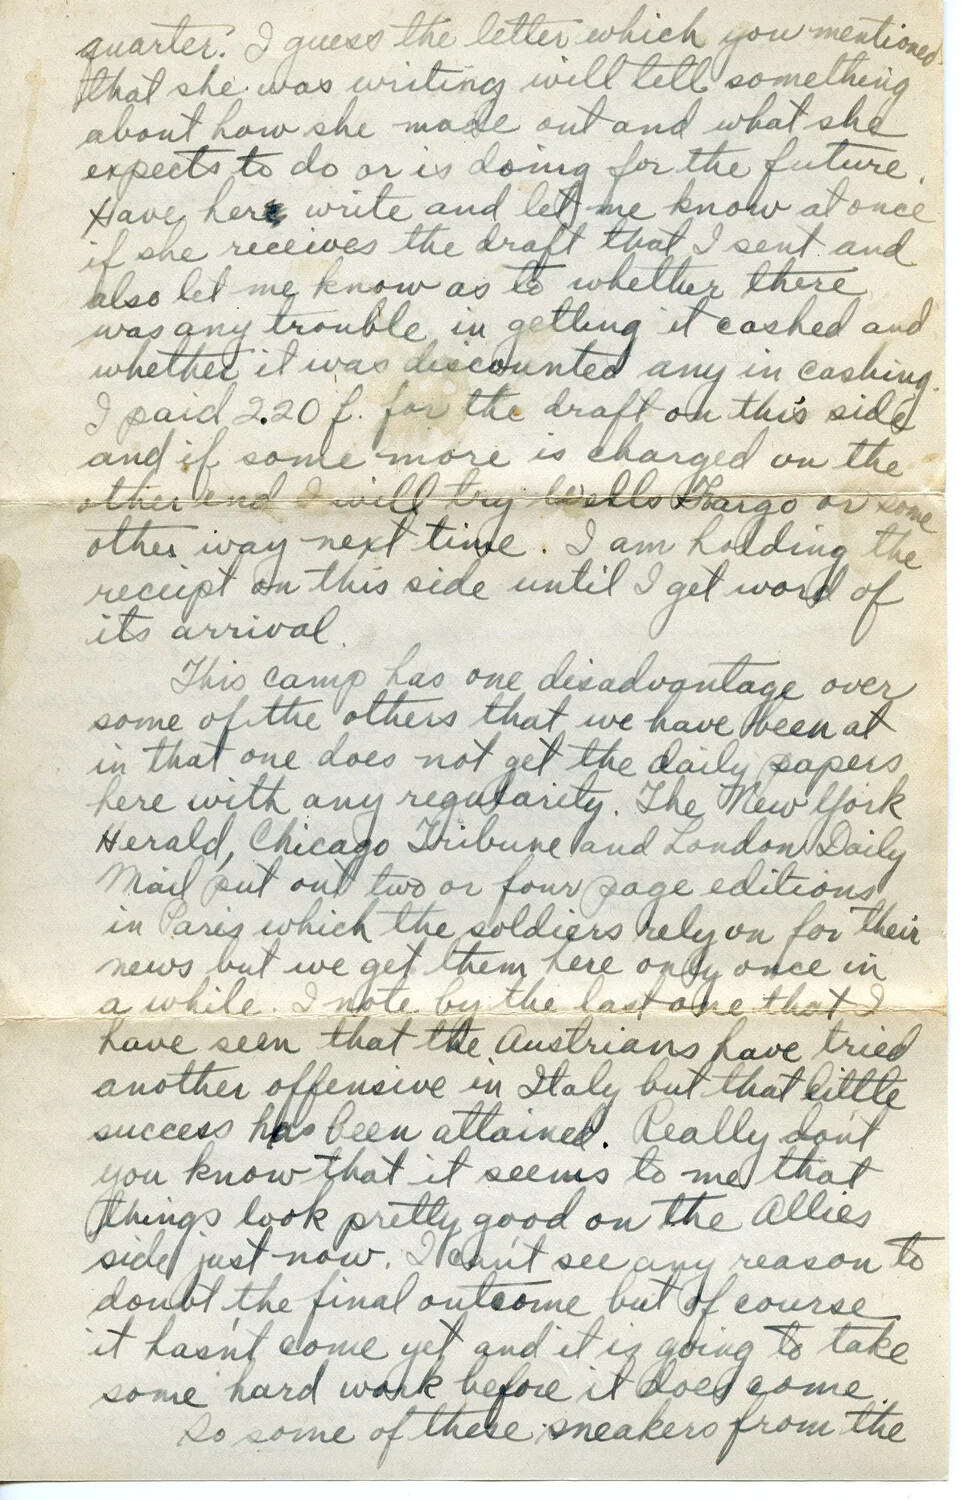 quarter." I guess the letter which you mentioned
that she was writing will tell something
about how she made out and what she
expects to do or is doing for the future.
Have here write and let me know at once
if she receives the draft that I sent and
also let me know as to whether there
was any trouble in getting it cashed and
whether it was discounted any in cashing.
I paid 2.20 f. for the draft on this side
and if some more is charged on the
other end I will try Wells Fargo or some
other way next time. I am holding the
receipt on this side until I get word of
its arrival.
This camp has one disadvantage over
some of the others that we have been at
in that one does not get the daily papers
here with any regularity. The New York
Herald, Chicago Tribune and London Daily
Mail put out two or four page editions
in Paris which the soldiers rely on for their
news but we get them here only once in
a while. I note by the last one that I
have seen that the Austrians have tried
another offensive in Italy but that little
success has been attained. Really don't
you know that it seems to me that
things look pretty good on the Allies
side just now. I can't see any reason to
doubt the final outcome but of course
it hasn't come yet and it is going to take
some hard work before it does come.
So some of these sneakers from the